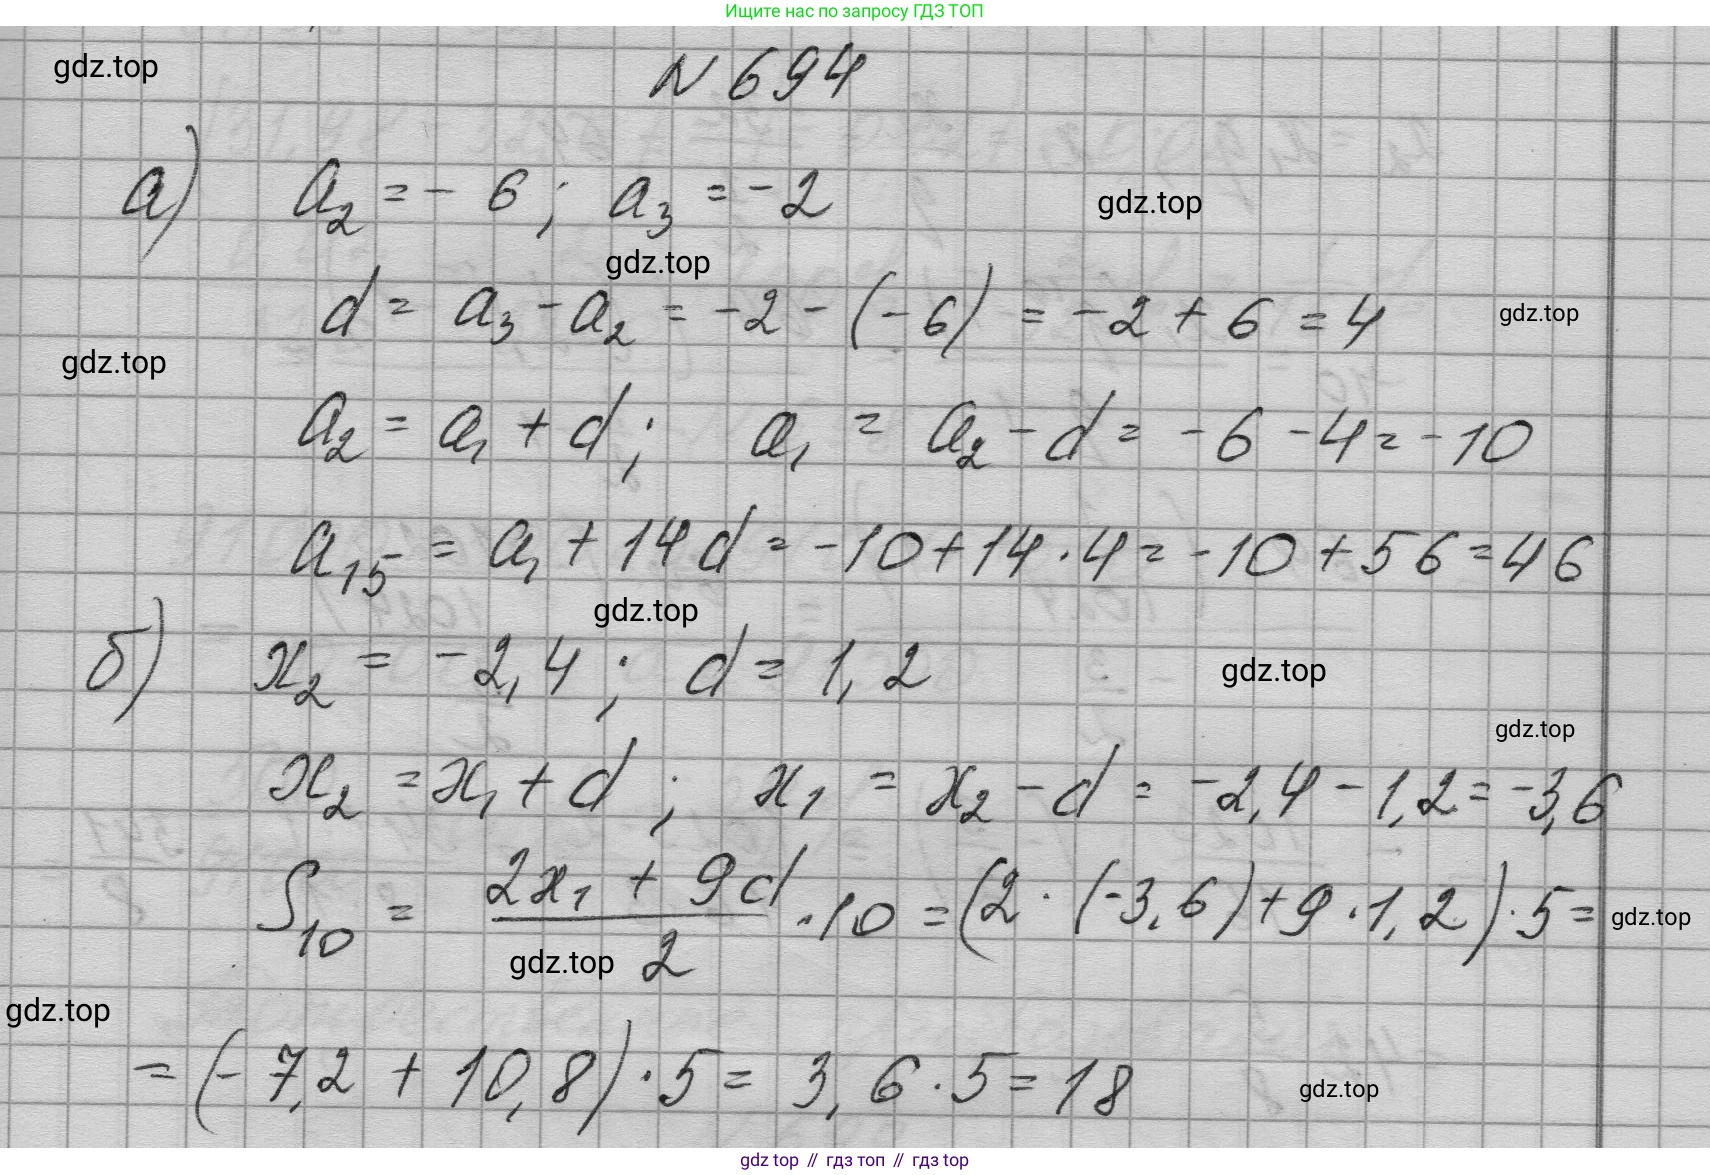 Ищите нас по запросу ГДЗ ТОП
gdz.top
N 694
а) a₂ = - 6 ; a₃ = -2
gdz.top
gdz.top
d = a₃ - a₂ = -2 - (-6) = -2 + 6 = 4
gdz.top
gdz.top
a₂ = a₁ + d ; a₁ = a₂ - d = -6 - 4 = -10
a₁₅ = a₁ + 14d = -10 + 14 · 4 = -10 + 56 = 46
gdz.top
б) x₂ = -2,4 ; d = 1,2
gdz.top
gdz.top
x₂ = x₁ + d ; x₁ = x₂ - d = -2,4 - 1,2 = -3,6
S₁₀ = (2x₁ + 9d)/2 · 10 = (2 · (-3,6) + 9 · 1,2) · 5 =
gdz.top
gdz.top
gdz.top
= (-7,2 + 10,8) · 5 = 3,6 · 5 = 18
gdz.top
gdz top // гдз топ // гдз top